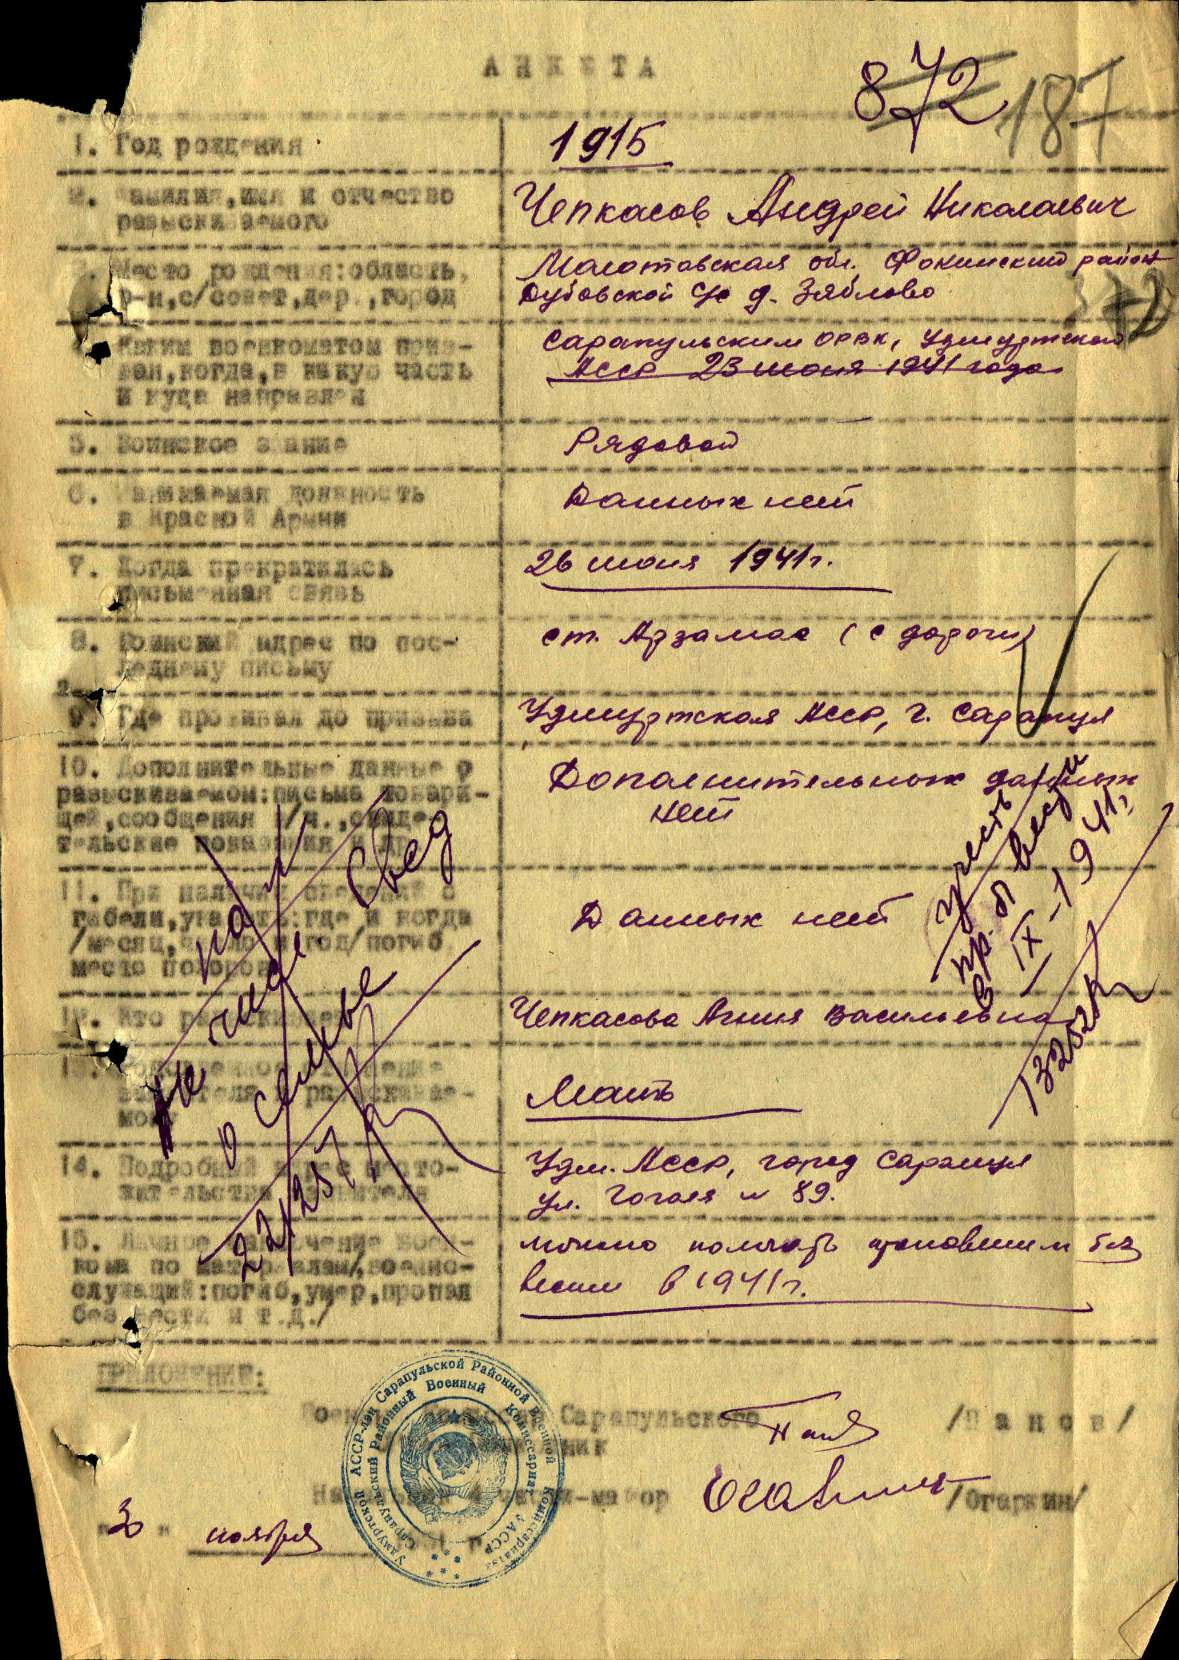 АНКЕТА
872 187
1. Год рождения
1915
2. Фамилия, имя и отчество
разыскиваемого
Чепкасов Андрей Николаевич
3. Место рождения: область,
р-н, с/совет, дер., город
Молотовская обл. Фокинский район
Дубовской с/с д. Зяблово
372
4. Каким военкоматом приз-
ван, когда, в какую часть
и куда направлен
Сарапульским ОРВК, Удмуртской
АССР 23 июня 1941 года
5. Воинское звание
Рядовой
6. Занимаемая должность
в Красной Армии
Данных нет
7. Когда прекратилась
письменная связь
26 июня 1941 г.
8. Воинский адрес по пос-
леднему письму
ст. Арзамас (с дороги)
9. Где проживал до призыва
Удмуртская АССР, г. Сарапул
10. Дополнительные данные о
разыскиваемом: письма товари-
щей, сообщения в/ч., свиде-
тельские показания и др.
Дополнительных данных
нет
11. При наличии сведений о
гибели, указать: где и когда
/месяц, число и год/ погиб,
место похорон
Данных нет
учесть
пр. б/вести
в IX-1941 г.
12. Кто разыскивает
Чепкасова Агния Васильевна
13. Родственное отношение
заявителя к разыскивае-
мому
Мать
14. Подробный адрес место-
жительства заявителя
Удм. АССР, город Сарапул
ул. Гоголя № 89.
15. Личное заключение воен-
кома по материалам /военно-
служащий: погиб, умер, пропал
без вести и т.д./
можно полагать пропавшим без
вести в 1941 г.
ПРИЛОЖЕНИЕ:
Военный комиссар Сарапульского
/Панов/
Начальник 4 части-майор
/Огаркин/
"3" ноября
Удмуртской АССР-лэн Сарапульской Районной Военной Комиссариатэз
Сарапульский Районный Военный Комиссариат УАССР